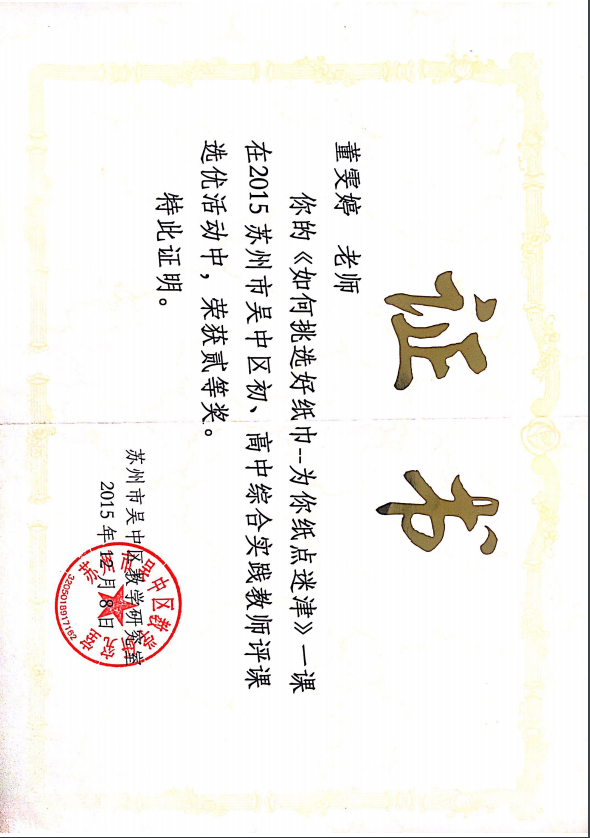 证书
董雯婷 老师
你的《如何挑选好纸巾--为你纸点迷津》一课
在2015苏州市吴中区初、高中综合实践教师评课
选优活动中，荣获贰等奖。
特此证明。
苏州市吴中区教学研究室
2015年12月8日
苏州市吴中区教学研究室
3205018917162